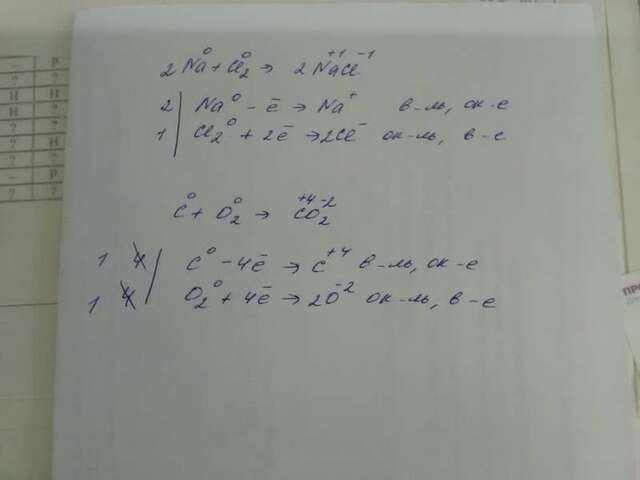 2Na⁰ + Cl₂⁰ → 2Na⁺¹Cl⁻¹
2 | Na⁰ - ē → Na⁺ в-ль, ок-е
1 | Cl₂⁰ + 2ē → 2Cl⁻ ок-ль, в-е
C⁰ + O₂⁰ → C⁺⁴O₂⁻²
1 4 | C⁰ - 4ē → C⁺⁴ в-ль, ок-е
1 4 | O₂⁰ + 4ē → 2O⁻² ок-ль, в-е